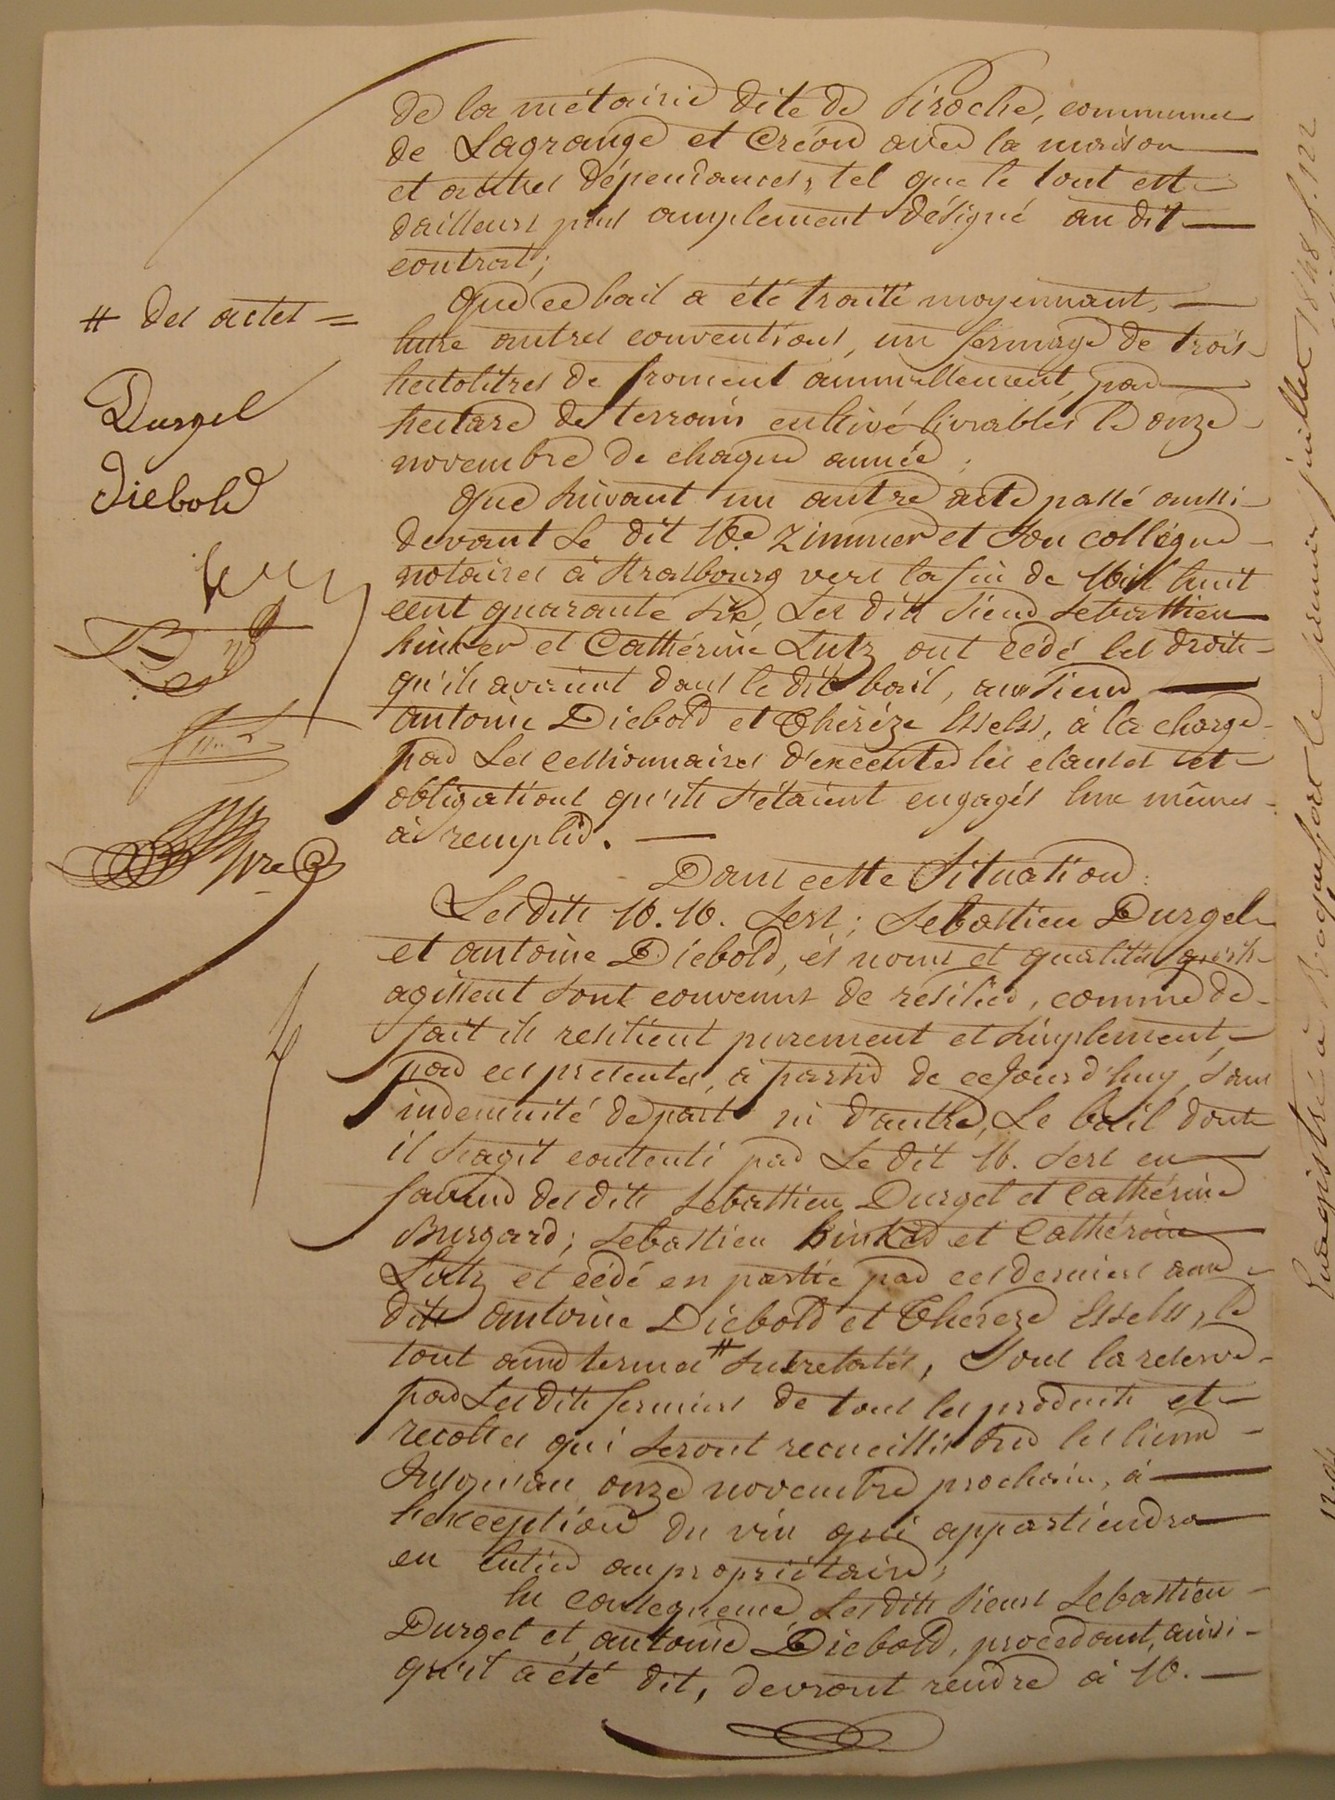 de la métairie dite de Piroche, communes
de Lagrange et Créon avec la maison
et autres dépendances, tel que le tout est
d'ailleurs plus amplement désigné au dit
contrat;
Que ce bail a été traité moyennant,
entre autres conventions, un fermage de trois
hectolitres de froment annuellement, par
hectare de terrain cultivé livrables le onze
novembre de chaque année;
Que suivant un autre acte passé aussi
devant le dit Me. Zimmer et son collègue
notaires à Strasbourg vers la fin de Mil huit
cent quarante six, Les dits sieur Sebastien
hinker et Cathérine Lutz ont cédé les droits
qu'ils avaient dans le dit bail, aux sieur
antoine Diebold et Thérèze Issels, à la charge
par Les cessionnaires d'executer les clauses et
obligations qu'ils s'étaient engagés eux mêmes
à remplir.
Dans cette Situation:
Les dits M.M. Sers; Sebastien Durgel
et antoine Diebold, ès noms et qualités qu'ils
agissent sont convenus de résilier, comme de
fait ils resilient purement et simplement,
par ces presentes, à partir de ce Jourd'huy, sans
indemnité de part ni d'autre, Le bail dont
il s'agit consenti par Le dit M. Sers en
faveur des dits Sebastien Durgel et Cathérine
Burgard; Sebastien hinker et Cathérine
Lutz et cédé en partie par ces derniers aux
dits antoine Diebold et Théreze Issels, le
tout aux termes # susrelatés, Sous la reserve
par Les dits fermiers de tous les produits et
recoltes qui seront recueillis sur les lieux
Jusqu'au onze novembre prochain, à
l'exception du vin qui appartiendra
en entier au propriétaire;
En consequence Les dits sieurs Sebastien
Durgel et antoine Diebold, procedant, ainsi
qu'il a été dit, devront rendre à M.
# des actes =
Durgel
Diebold
Enregistré à Roquefort le premier juillet 1848 f. 122